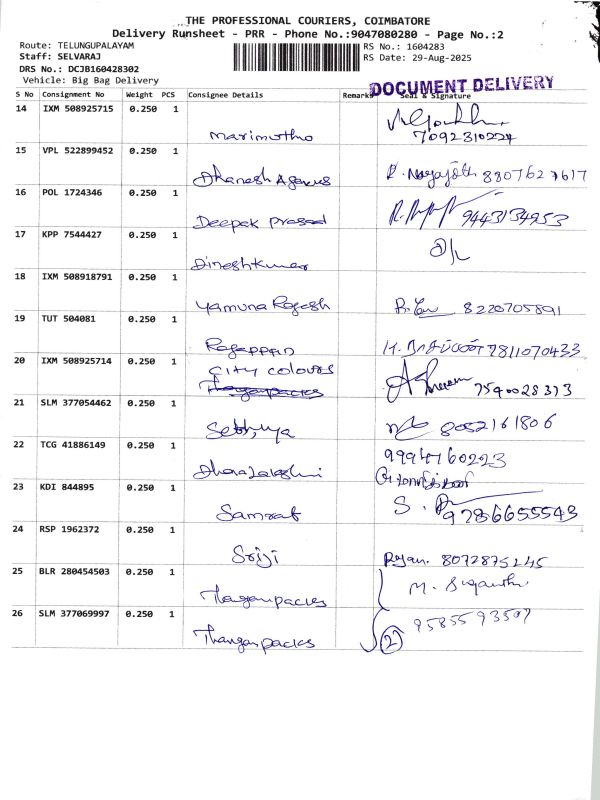 THE PROFESSIONAL COURIERS, COIMBATORE
Delivery Runsheet - PRR - Phone No.:9047080280 - Page No.:2
Route: TELUNGUPALAYAM
RS No.: 1604283
Staff: SELVARAJ
RS Date: 29-Aug-2025
DRS No.: DCJB160428302
Vehicle: Big Bag Delivery
DOCUMENT DELIVERY
S No Consignment No Weight PCS Consignee Details Remarks Seal & Signature
14 IXM 508925715 0.250 1
Marimutho 7092310224
15 VPL 522899452 0.250 1
Dhanesh Agencies 8807627617
16 POL 1724346 0.250 1
Deepak prasad 9443134953
17 KPP 7544427 0.250 1
Dineshkumar
18 IXM 508918791 0.250 1
Yamuna Rajesh 8220705891
19 TUT 504081 0.250 1
Rajappan 7811070433
20 IXM 508925714 0.250 1
City colours
Thangampacks 7540028373
21 SLM 377054462 0.250 1
8052161806
22 TCG 41886149 0.250 1
9994760223
Dhanalakshmi
23 KDI 844895 0.250 1
Samrat S. 9286655543
24 RSP 1962372 0.250 1
Sriji 8072875245
25 BLR 280454503 0.250 1
Thangampacks M. Suganthi
26 SLM 377069997 0.250 1
9585593507
Thangampacks 2